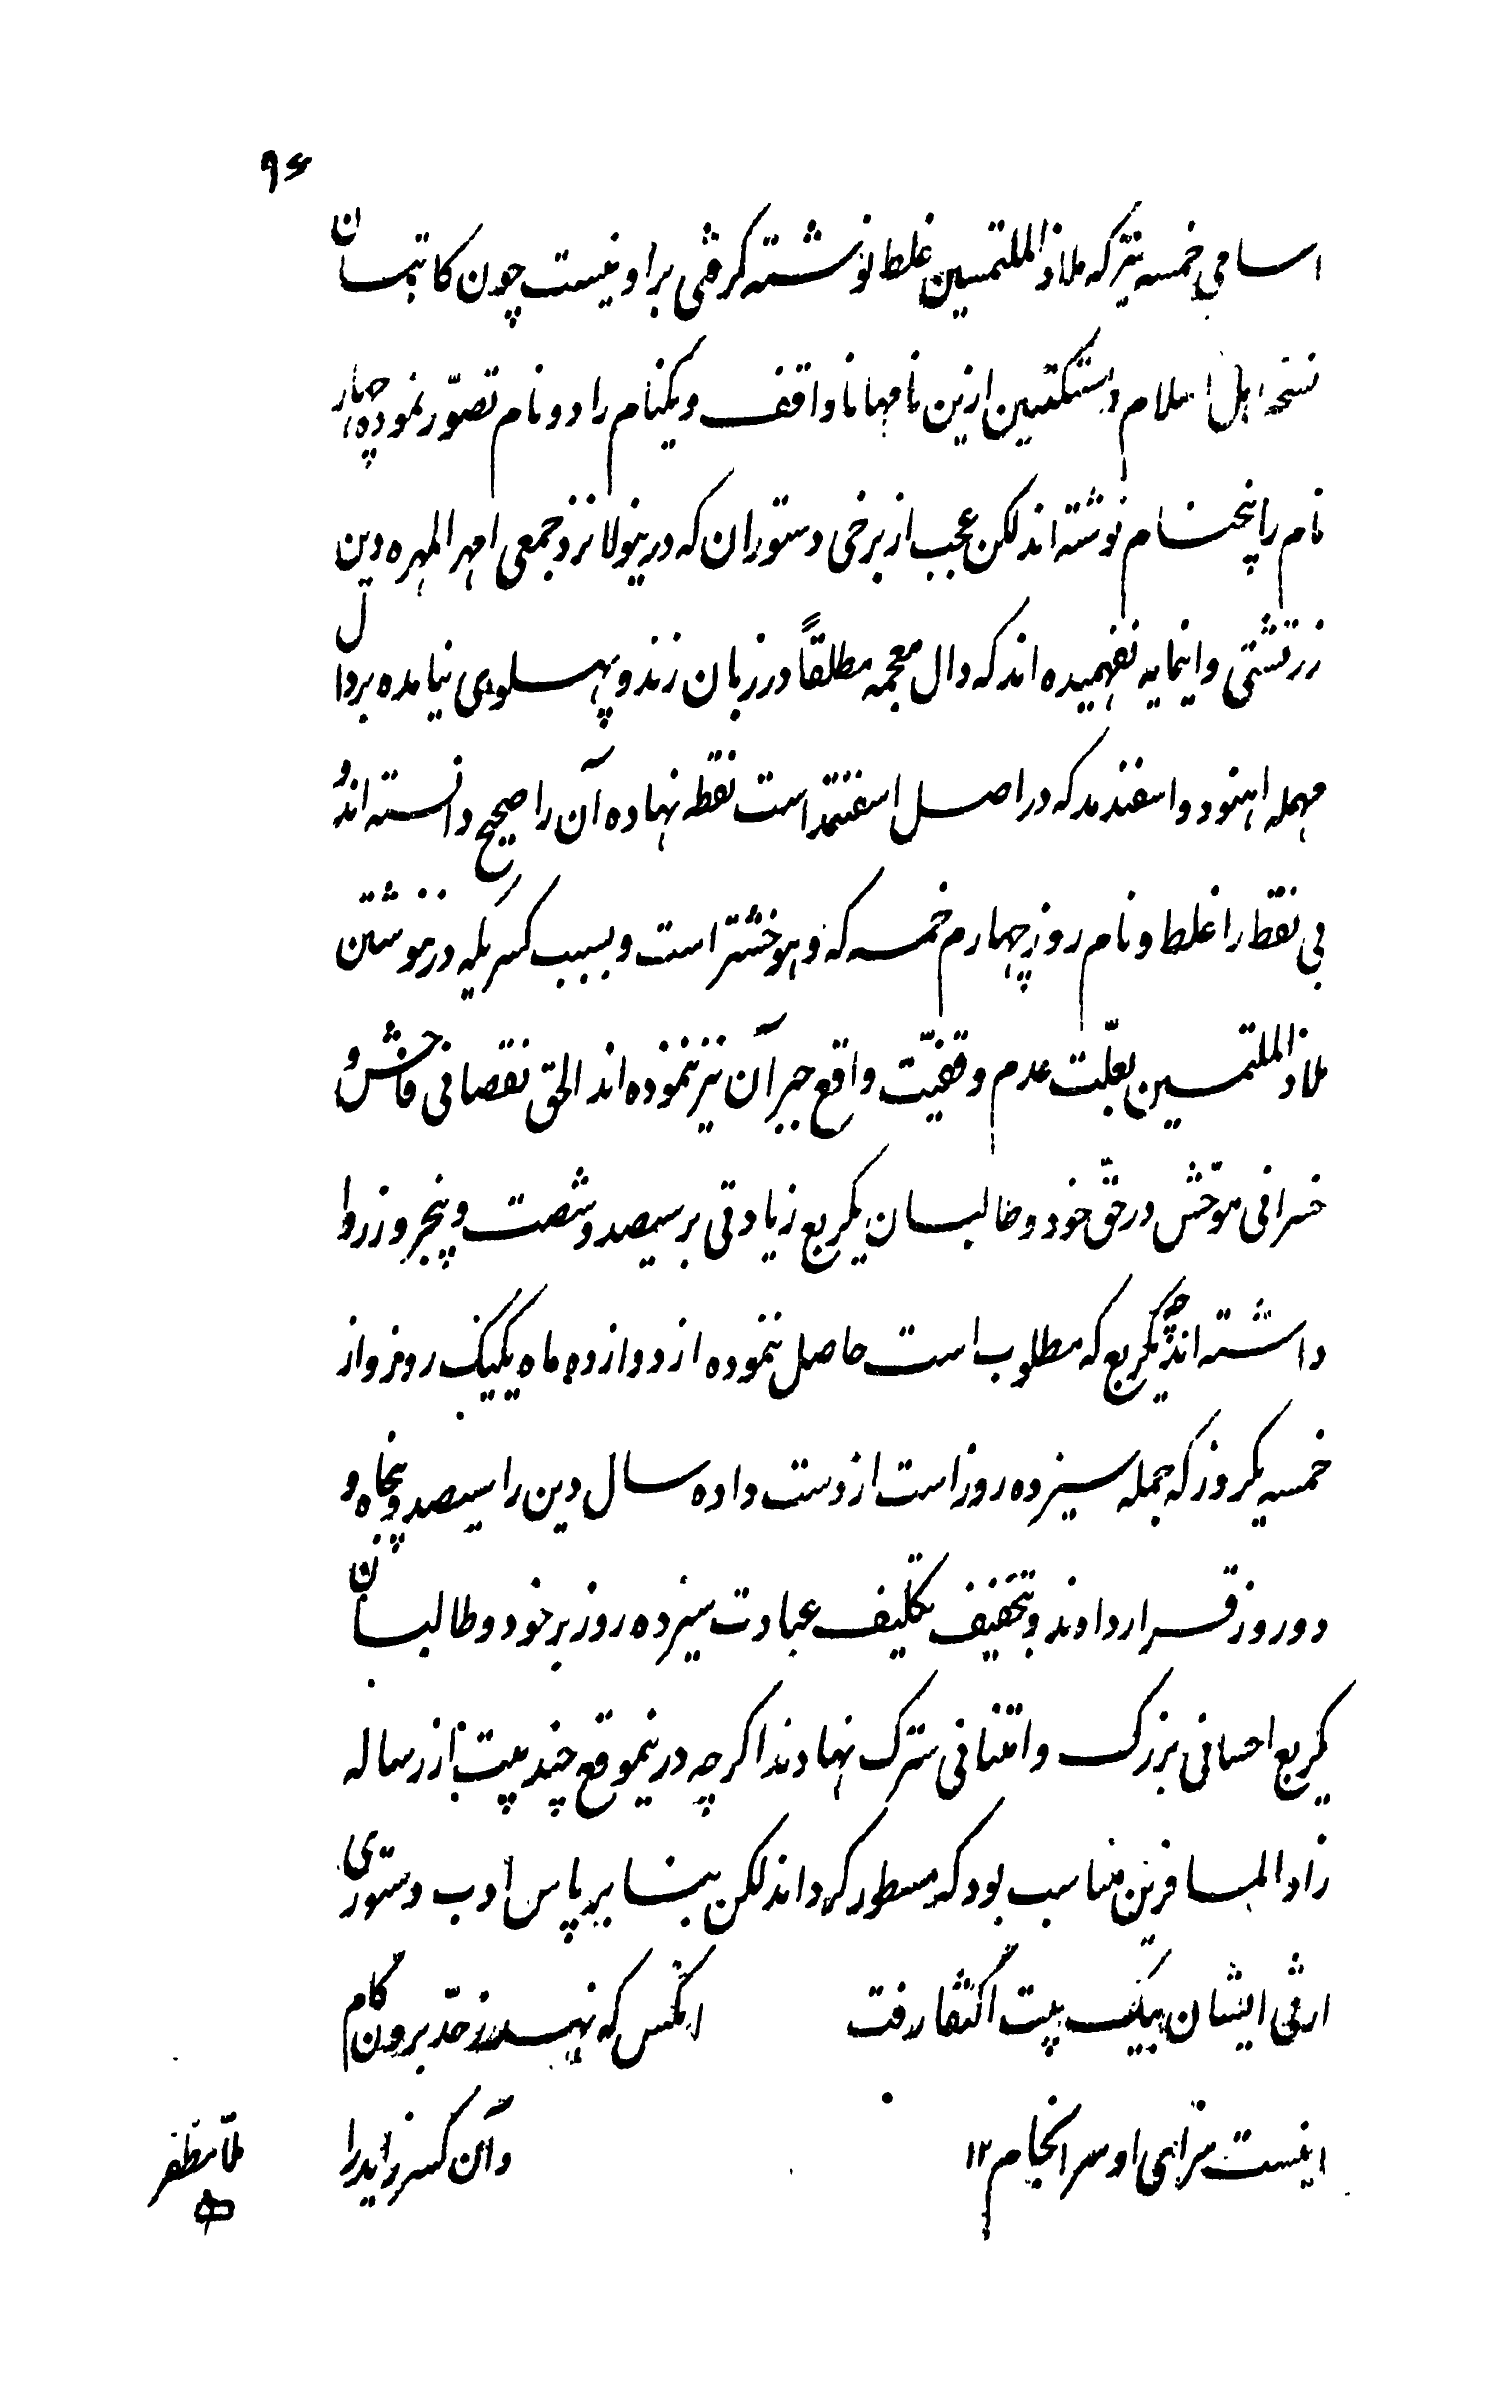 ۹۶
اسامی خمسه نیز که ملاذ الملتمسین غلط نوشته گرفتی بر او نیست چون کاتبان
نسخه اهل اسلام و مستکتبین ازین نامها ناواقف و یکنام را دو نام تصوّر نموده چهار
نام را پنجنام نوشته‌اند لکن عجب از برخی دستوران که درینولا نزد جمعی امهر المهره دین
زرتشتی و اینمایه نفهمیده‌اند که دال معجمه مطلقاً در زبان زند و پهلوی نیامده بر دال
مهمله اهنود و اسفندمد که در اصل اسفنتمد است نقطه نهاده آن را صحیح دانسته‌اند و
بی نقط را غلط و نام روز چهارم خمسه که وهوخشتر است و بسبب کسر یله در نوشتن
ملاذ الملتمسین بعلّت عدم وقفیّت واقع جبر آن نیز ننموده‌اند الحق نقصانی فاحش و
خسرانی موحش در حقّ خود و طالبان یکربع زیادتی بر سیصد و شصت و پنجروز روا
داشته‌اند چه یکربع که مطلوب است حاصل ننموده از دوازده ماه یکیک روز و از
خمسه یکروز که جمله سیزده روز است از دست داده سال دین را سیصد و پنجاه و
دو روز قرار دادند و بتخفیف تکلیف عبادت سیزده روز بر خود و طالبان
یکربع احسانی بزرگ و امتنانی سترگ نهادند اگرچه درینموقع چند بیت از رساله
زاد المسافرین مناسب بود که مسطور گرداند لکن بنا بر پاس ادب دستوری
ارثی ایشان بیک بیت اکتفا رفت انکس که نهد ز حدّ برون گام
اینست سزای او سرانجام ۱۲ و آن کسر زاید را
ملّا مظفر